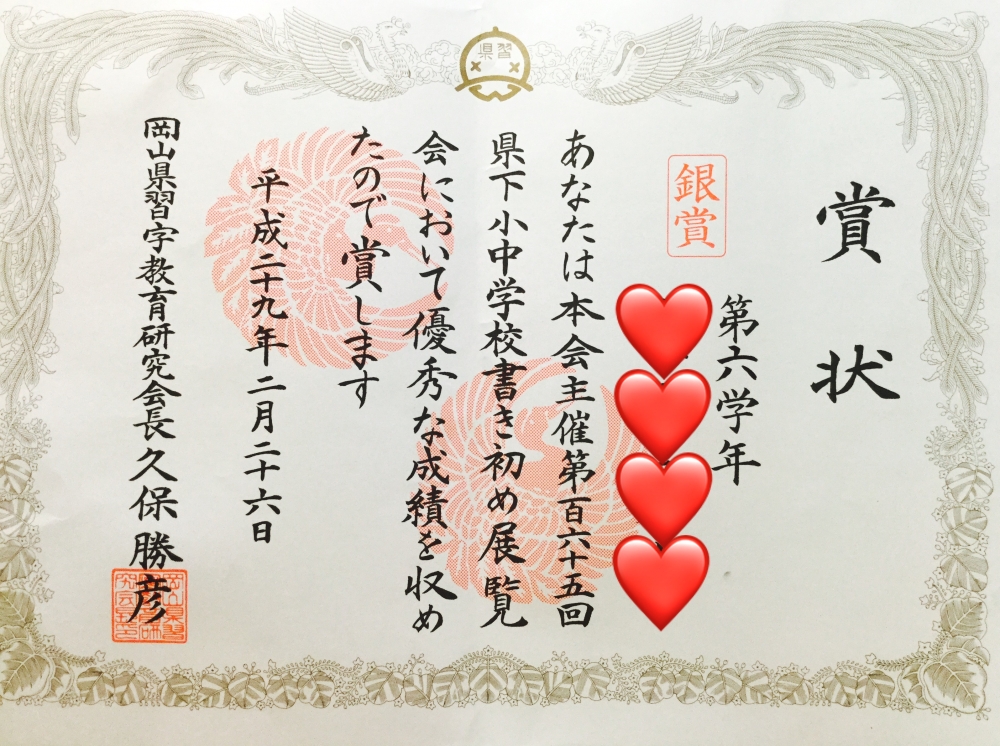 県習
賞状
銀賞
第六学年
あなたは本会主催第百六十五回
県下小中学校書き初め展覧
会において優秀な成績を収め
たので賞します
平成二十九年二月二十六日
岡山県習字教育研究会長久保勝彦